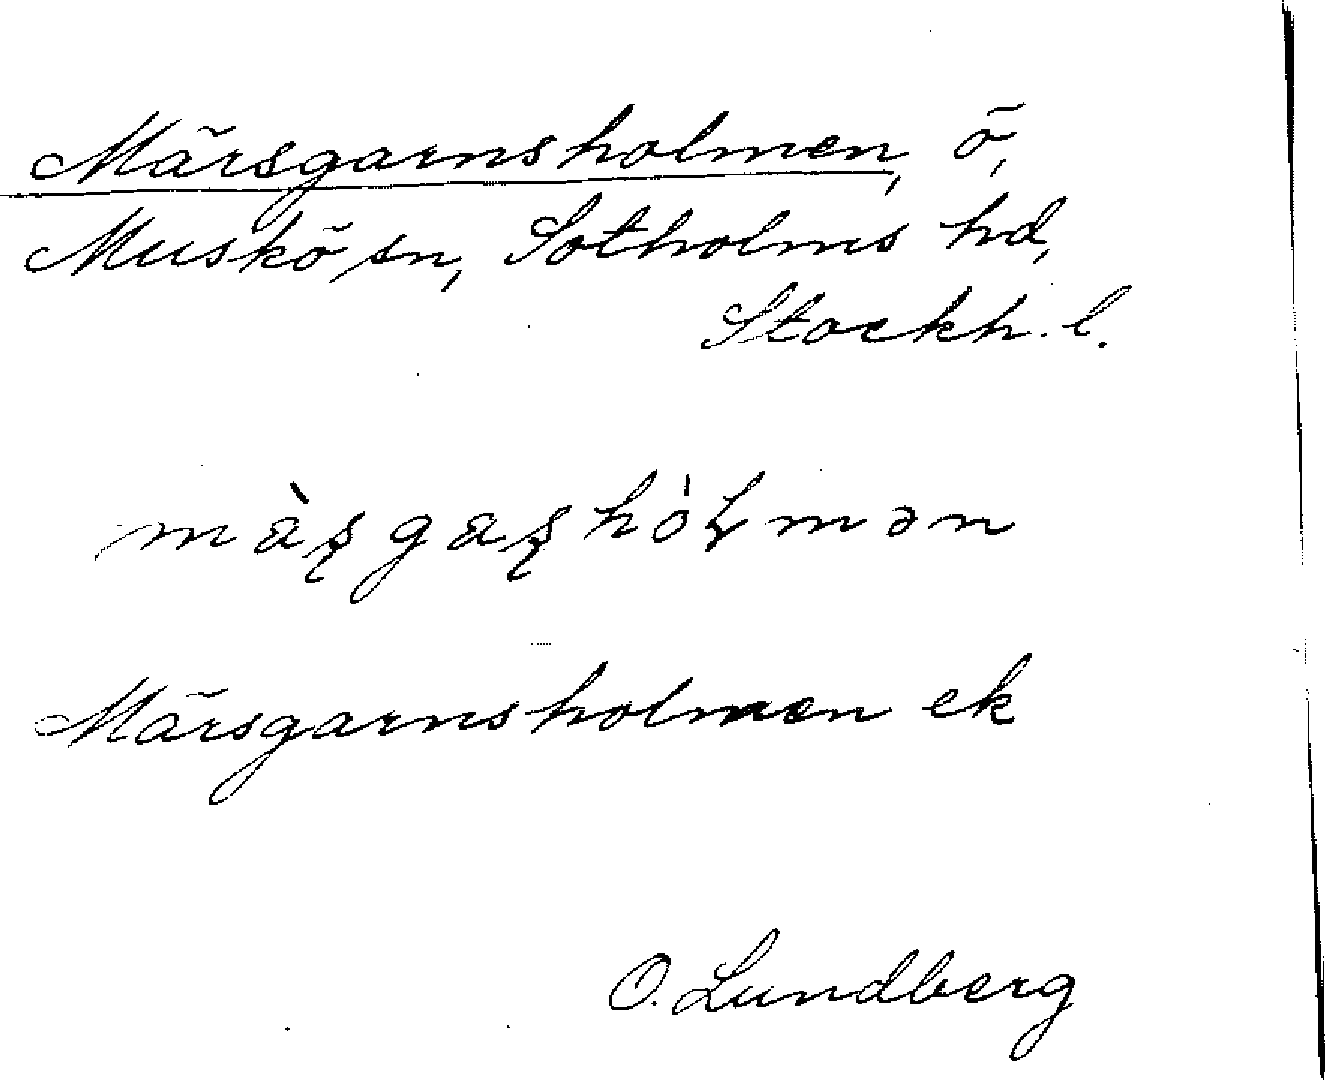 Märsgarnsholmen, ö,
Muskö sn, Sotholms hd,
Stockh. l.
màʂgaʂhȯɽmən
Märsgarnsholmen ek
O. Lundberg